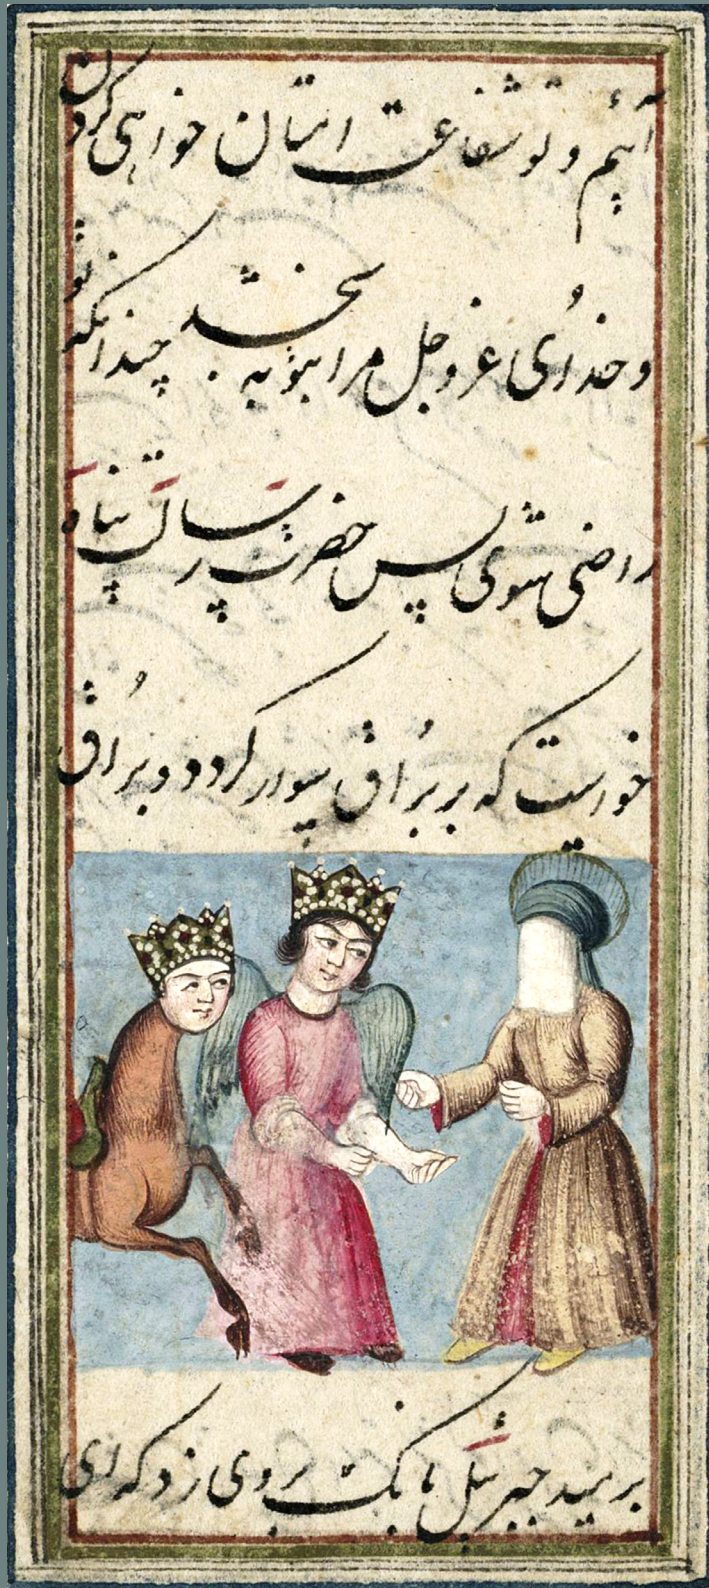 آئیم و تو شفاعت ایشان خواهی کردن
و خدای عز و جل مرا بتو به بخشد چندانکه تو
راضی شوی پس حضرت رسالت پناه
خواست که بر براق سوار کردد و براق
برمید جبرئیل بانک بروی زد که ای